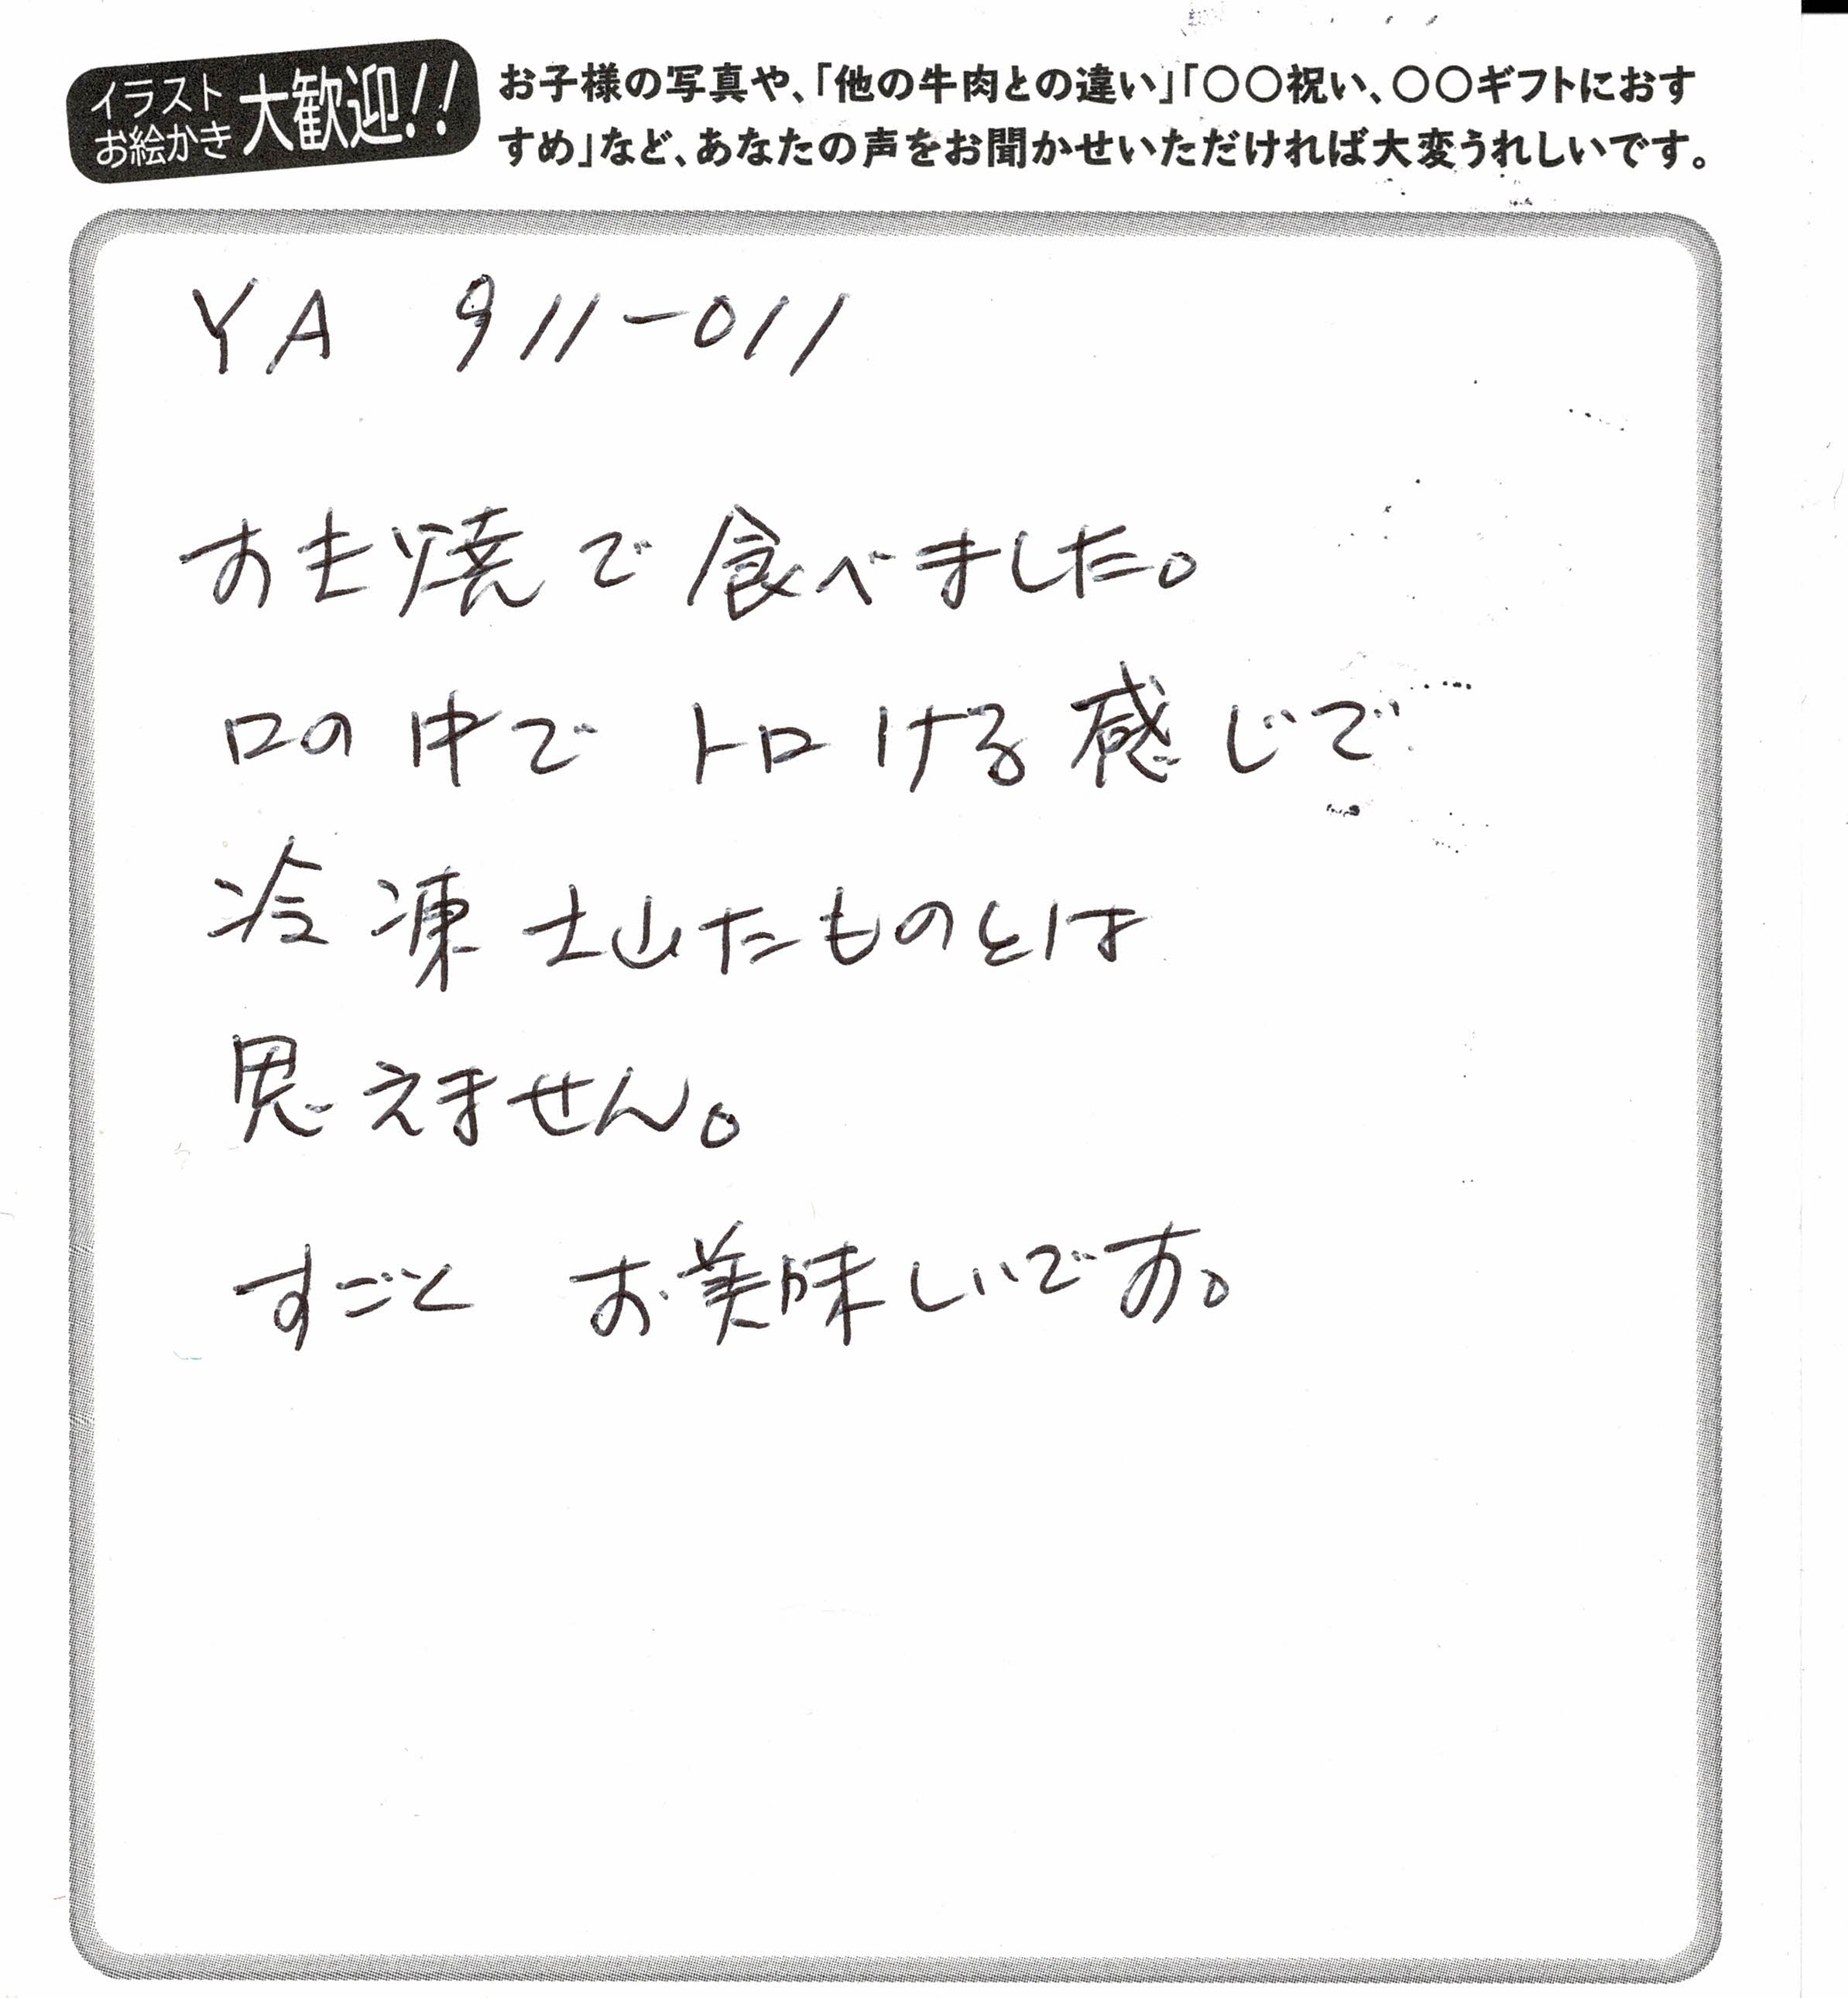 イラスト
お絵かき
大歓迎!!
お子様の写真や、「他の牛肉との違い」「〇〇祝い、〇〇ギフトにおす
すめ」など、あなたの声をお聞かせいただければ大変うれしいです。
YA 911-011
すき焼で食べました。
口の中でトロける感じで
冷凍されたものとは
思えません。
すごく お美味しいです。